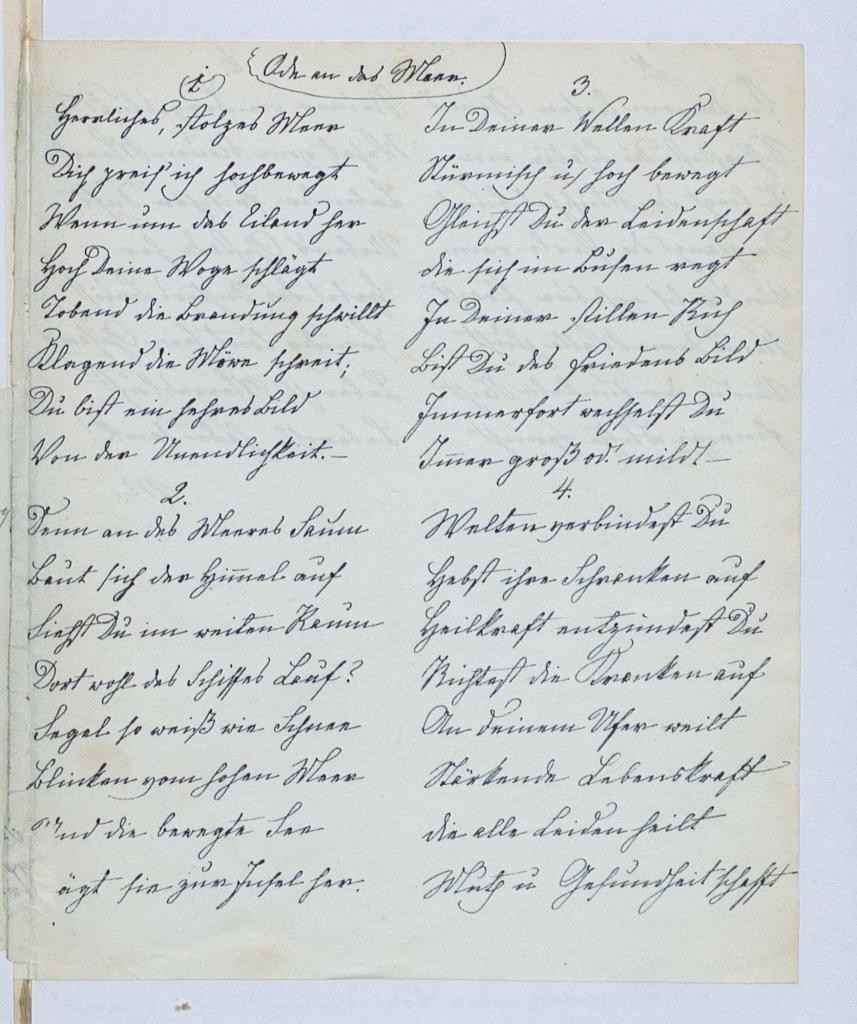 Ode an das Meer.
1
Herrliches, stolzes Meer
Dich preis' ich hochbewegt
Wenn um das Eiland her
Hoch Deine Woge schlägt
Tobend die Brandung schwillt
Klagend die Möwe schreit;
Du bist ein hehres Bild
Von der Unendlichkeit.–
2.
Denn an des Meeres Saum
Baut sich der Him̄el auf
Siehst Du im weiten Raum
Dort wohl des Schiffes Lauf?
Segel so weiß wie Schnee
Blinken vom hohen Meer
Und die bewegte See
ägt sie zur Insel her.
3.
In Deiner Wellen Kraft
Stürmisch u. hoch bewegt
Gleichst Du der Leidenschaft
die sich im Busen regt
In Deiner stillen Ruh
Bist Du des Friedens Bild
Immerfort wechselst Du
Im̄er groß od. mild!–
4.
Welten verbindest Du
Hebst ihre Schranken auf
Heilkraft entzündest Du
Richtest die Kranken auf
An deinem Ufer weilt
Stärkende Lebenskraft
die alle Leiden heilt
Muth u Gesundheit schafft